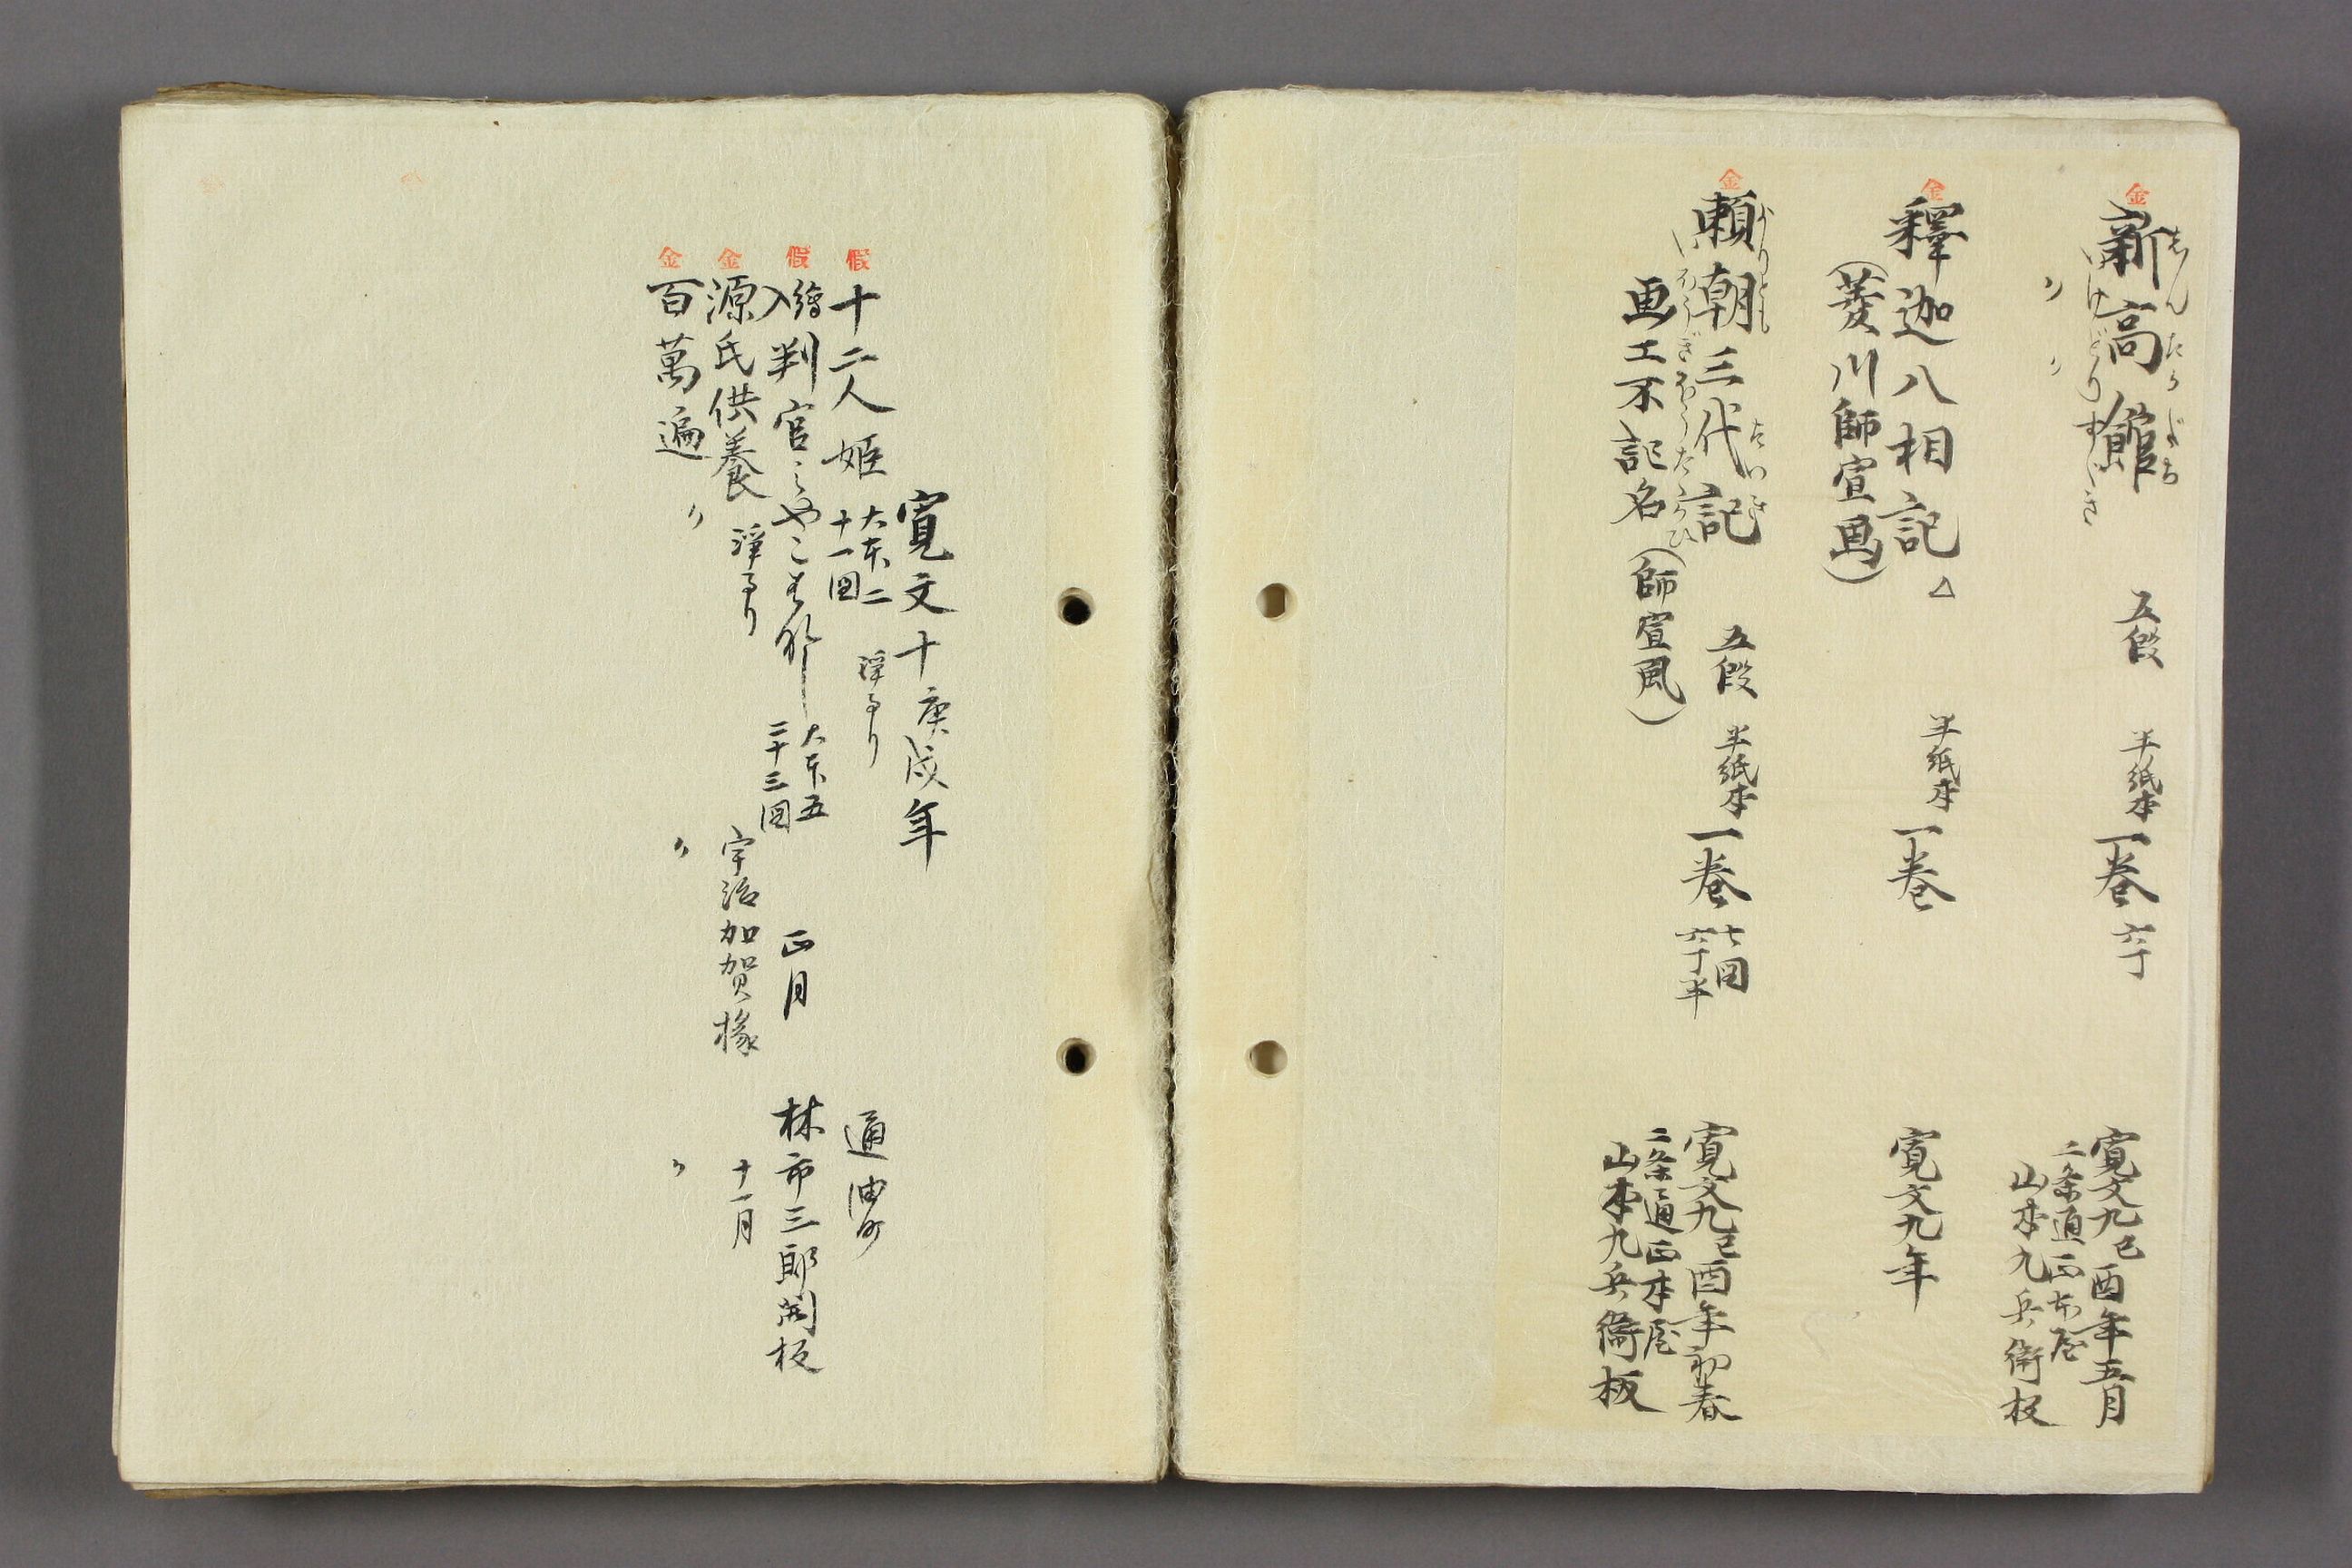 金
新高館 五段 半紙本 一巻 六丁 寛文九己酉年五月
しんたかだち
二条通正本屋
山本九兵衛板
金
釋迦八相記 △ 半紙本 一巻 寛文九年
(菱川師宣画)
金
頼朝三代記 五段 半紙本 一巻 七図 六丁半 寛文九己酉年初春
よりとも たいき
画工不記名(師宣風)
二条通正本屋
山本九兵衛板
寛文十庚戌年
假
十二人姫 大本二 十一図 浄るり 通油町
假
繪入 判官みやこはなし 大本五 二十三図 正月 林市三郎開板
金
源氏供養 浄るり 宇治加賀掾 十一月
金
百萬遍 〃 〃 〃